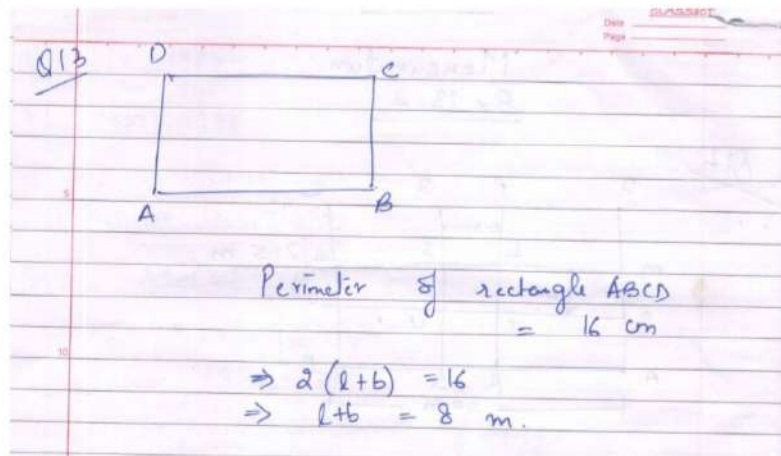 CLASSMATE
Date
Page
Q13
D C
5
A B
Perimeter of rectangle ABCD
= 16 cm
10
⇒ 2 (l+b) = 16
⇒ l+b = 8 m.